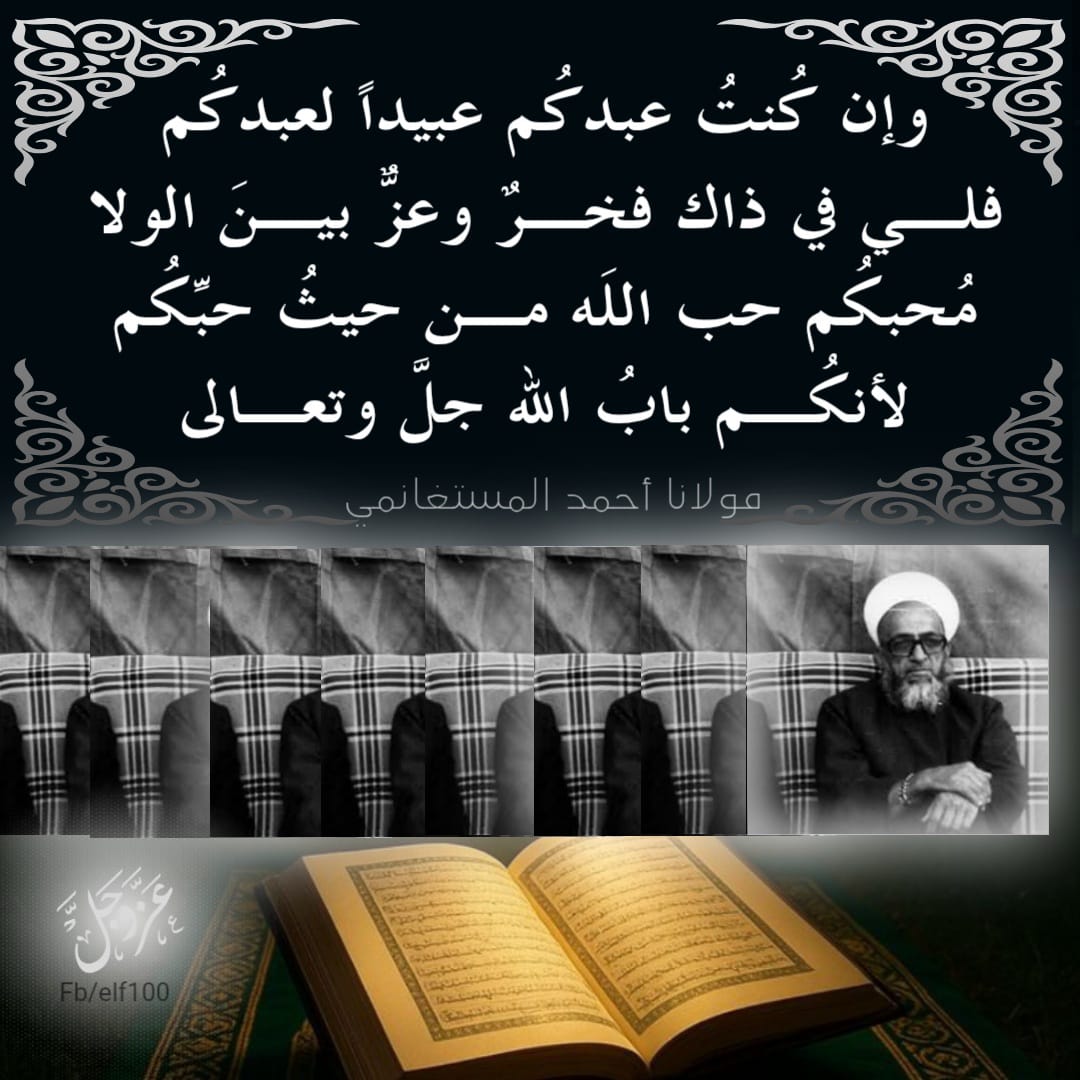 وإن كُنتُ عبدكُم عبيداً لعبدكُم
فلـــي في ذاك فخـــرٌ وعزٌّ بيـــنَ الولا
مُحبكُم حب اللَه مـــن حيثُ حبِّكُم
لأنكُـــم بابُ الله جلَّ وتعـــالى
مولانا أحمد المستغانمي
عز وجل
Fb/elf100